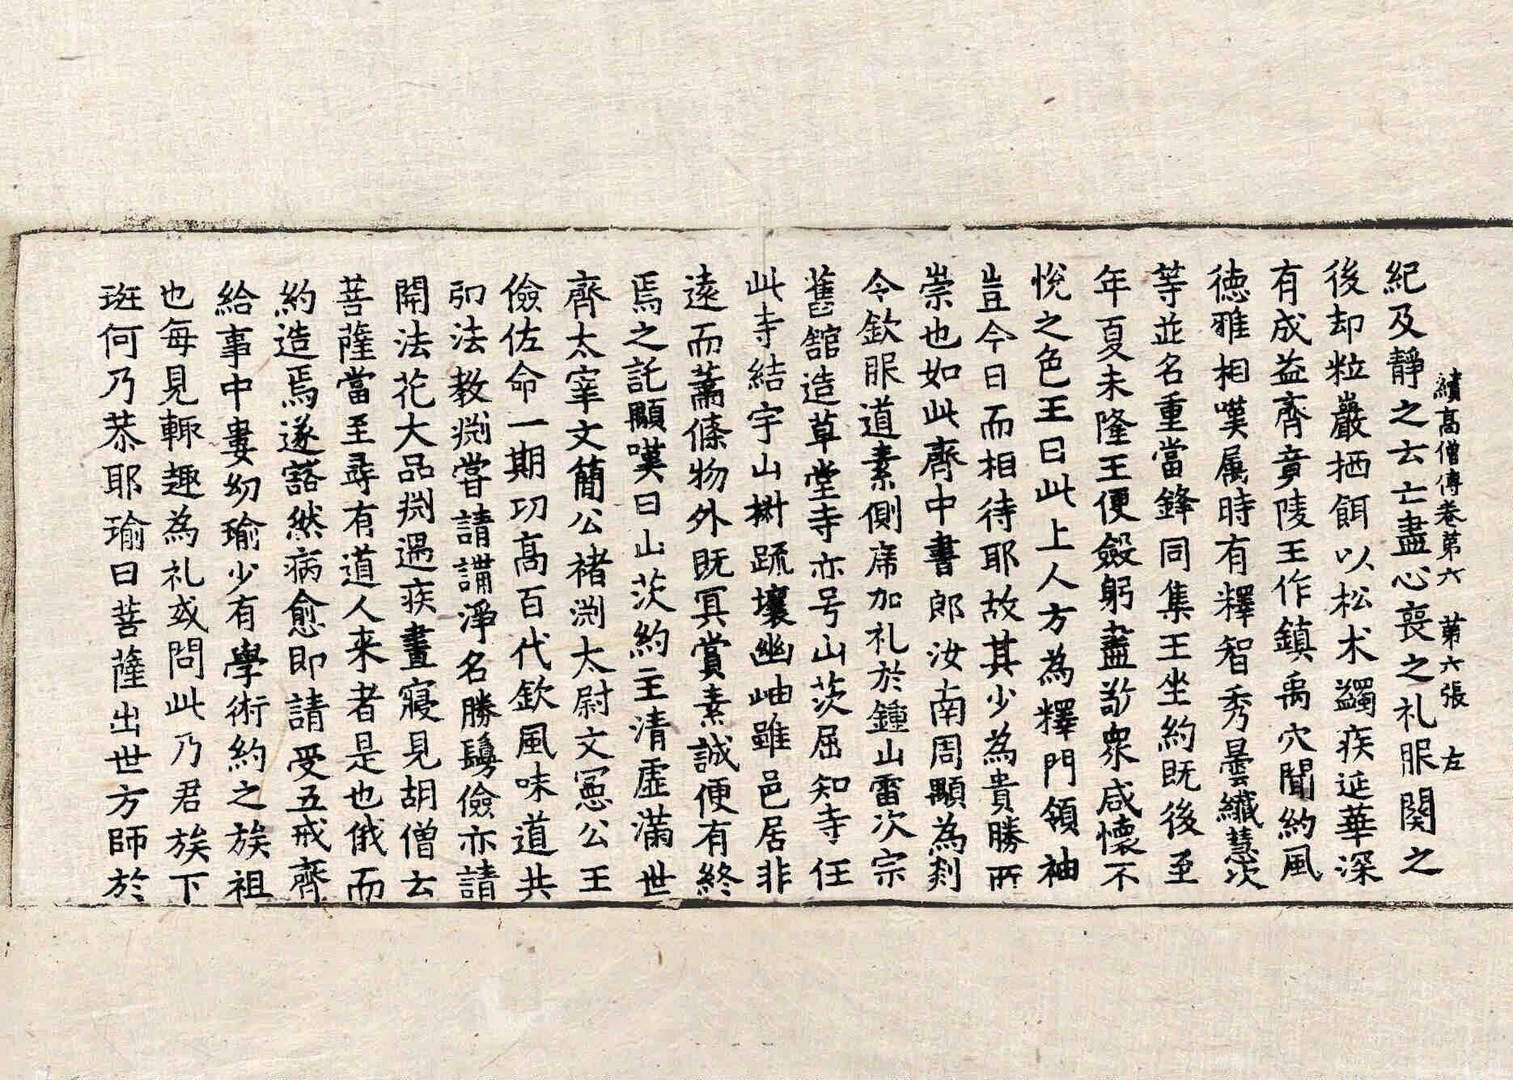 續高僧傳卷第六 第六張 左
紀及靜之云亡盡心喪之礼服闋之
後却粒巖栖餌以松术蠲疾延華深
有成益齊竟陵王作鎮禹穴聞約風
徳雅相嘆属時有釋智秀曇纖慧次
等並名重當鋒同集王坐約既後至
年夏未隆王便斂躬盡敬衆咸懷不
悅之色王曰此上人方為釋門領袖
豈今日而相待耶故其少為貴勝所
崇也如此齊中書郎汝南周顒為剡
令欽服道素側席加礼於鍾山雷次宗
舊舘造草堂寺亦号山茨屈知寺任
此寺結宇山㭊疏壤幽岫雖邑居非
遠而蕭條物外既冥賞素誠便有終
焉之託顒嘆曰山茨約主清虛滿世
齊太宰文簡公褚渕太尉文憲公王
儉佐命一期功髙百代欽風味道共
弘法教渕甞請講淨名勝鬘儉亦請
開法花大品渕遇疾晝寢見胡僧云
菩薩當至尋有道人来者是也俄而
約造焉遂豁然病愈即請受五戒齊
給事中婁㓜瑜少有學術約之族祖
也每見輙趣為礼或問此乃君族下
班何乃恭耶瑜曰菩薩出世方師於